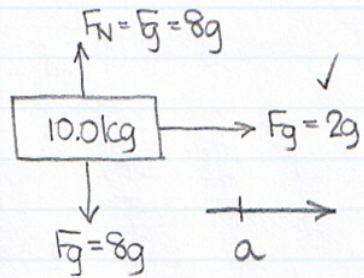 FN = Fg = 8g
10.0kg
Fg = 2g
Fg = 8g
a